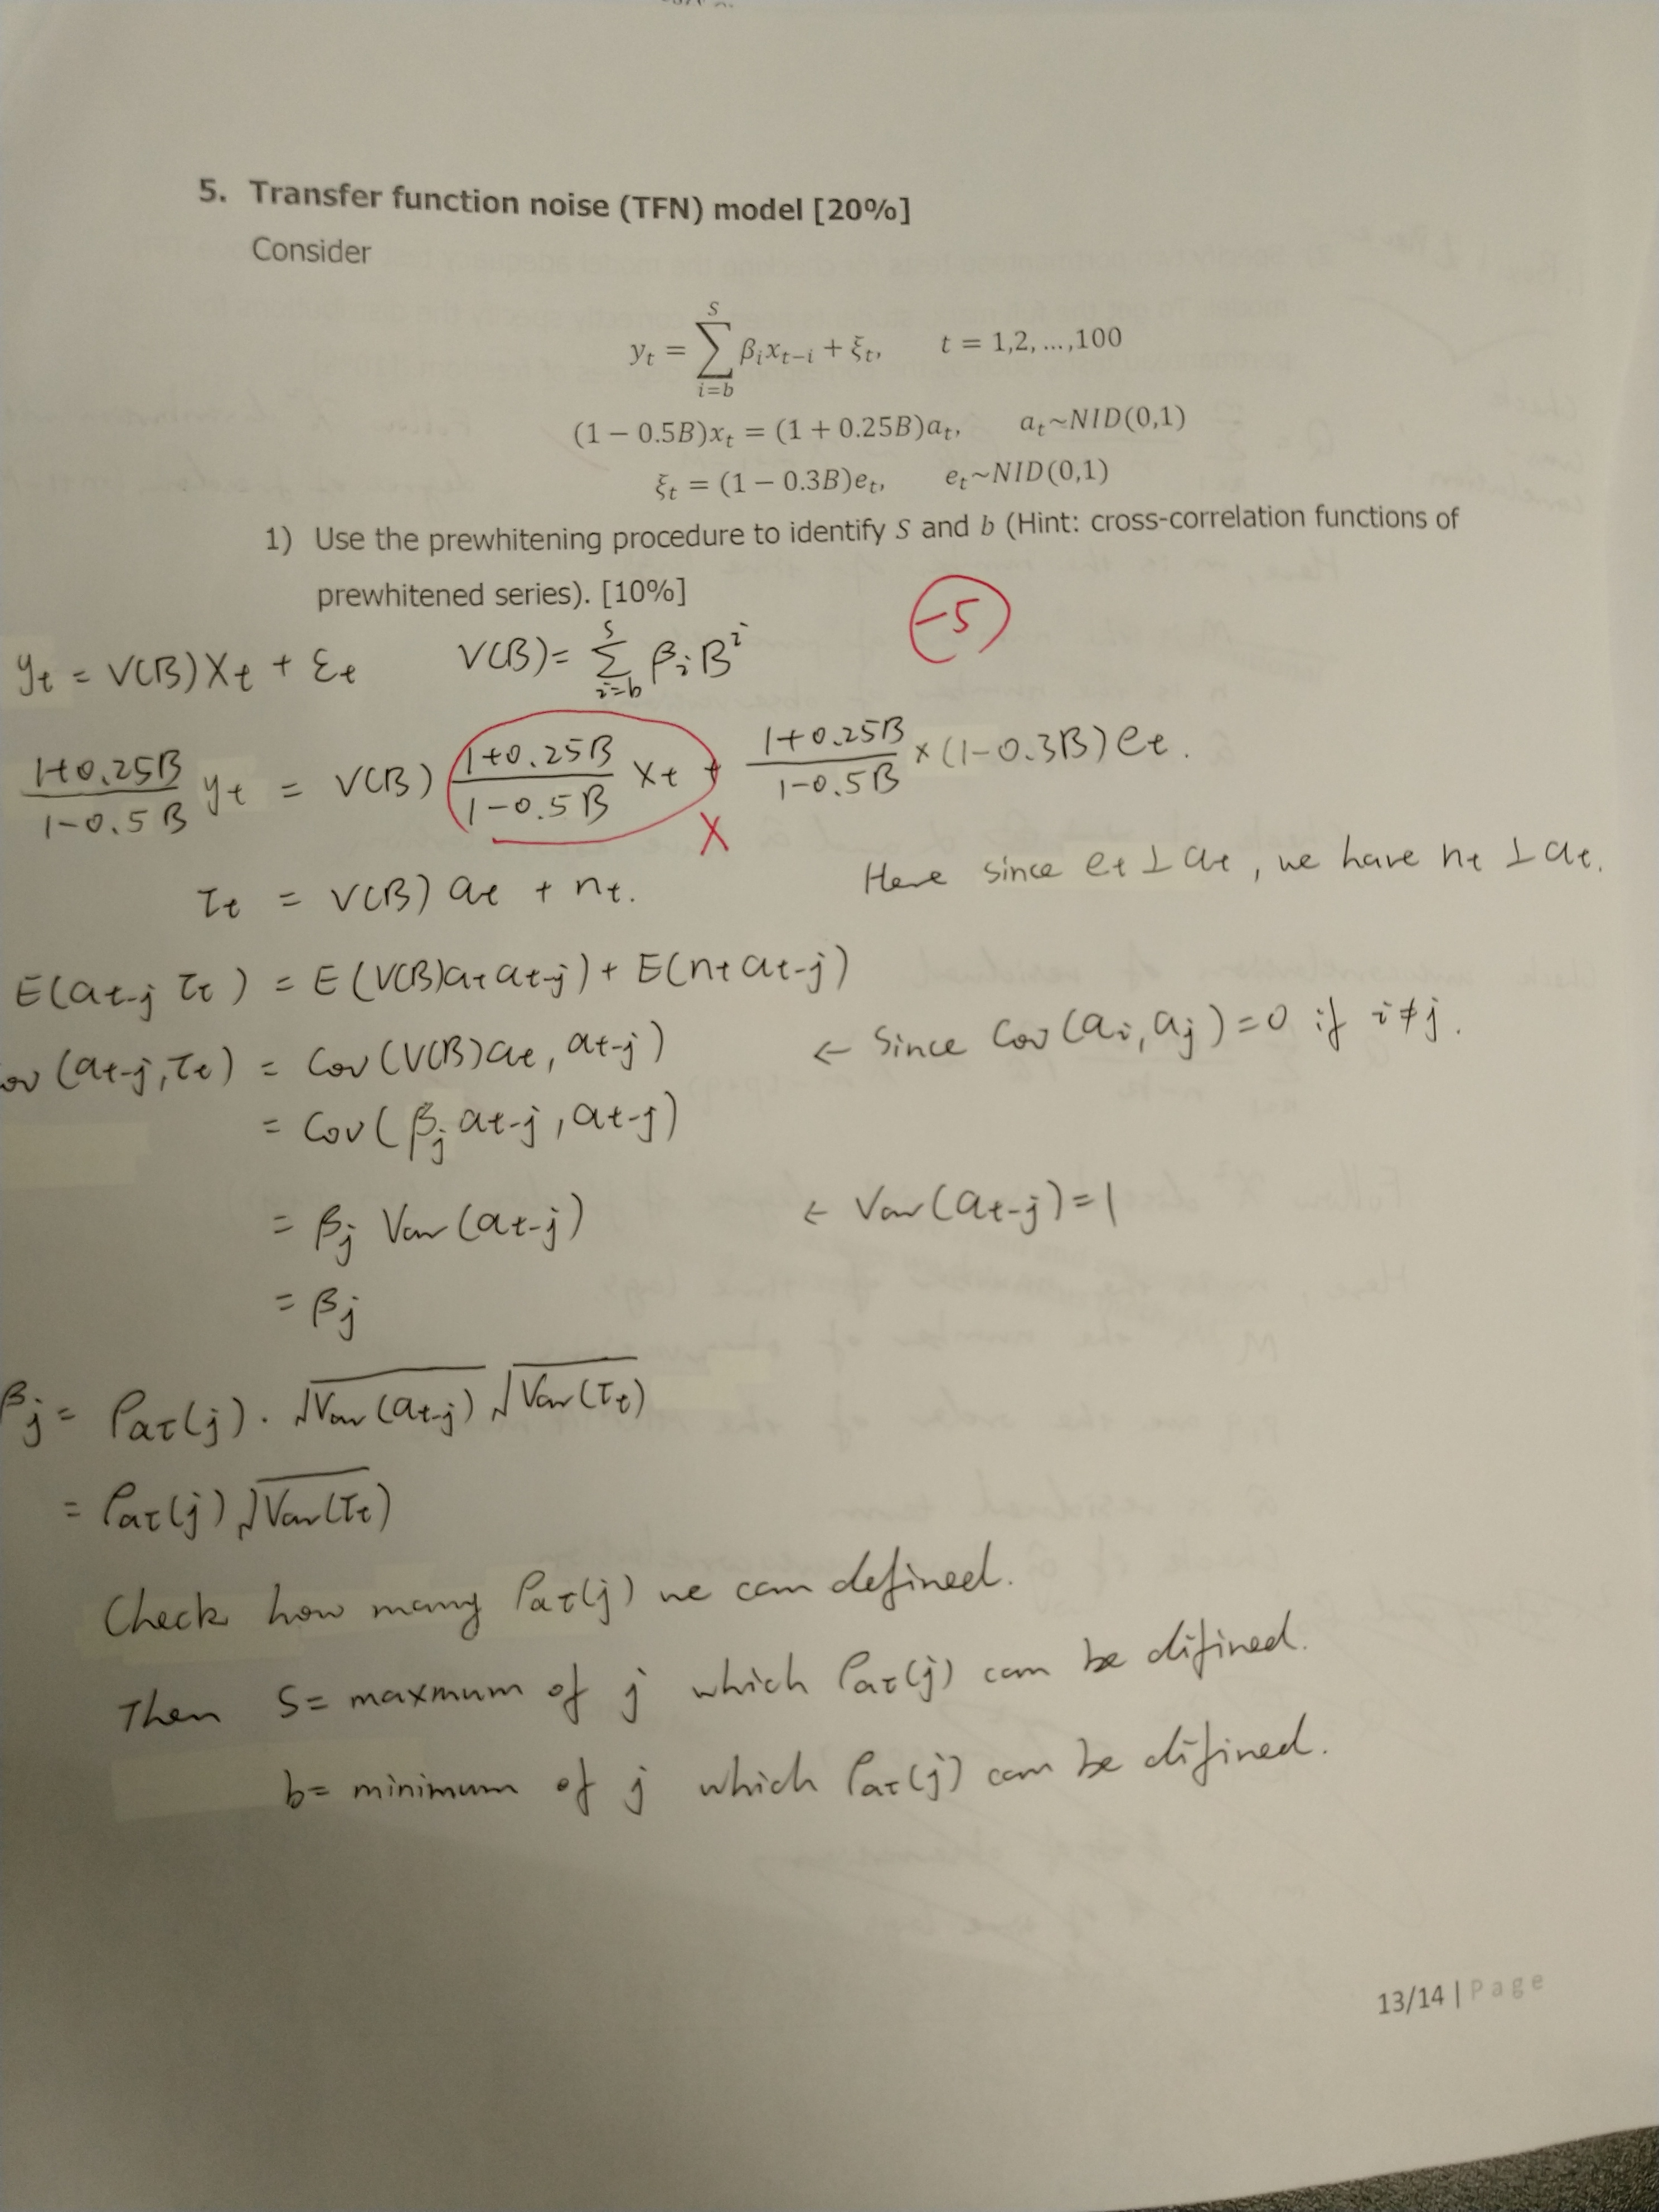 5. Transfer function noise (TFN) model [20%]
Consider
y_t = ∑_{i=b}^{S} β_i x_{t−i} + ξ_t,   t = 1,2, …,100
(1 − 0.5B)x_t = (1 + 0.25B)a_t,   a_t~NID(0,1)
ξ_t = (1 − 0.3B)e_t,   e_t~NID(0,1)
1) Use the prewhitening procedure to identify S and b (Hint: cross-correlation functions of
prewhitened series). [10%]
-5
y_t = V(B)X_t + ε_t   V(B) = ∑_{i=b}^{s} β_i B^i
(1+0.25B)/(1-0.5B) y_t = V(B) (1+0.25B)/(1-0.5B) X_t + (1+0.25B)/(1-0.5B) × (1-0.3B)e_t.
X
τ_t = V(B) a_t + n_t.   Here since e_t ⊥ a_t, we have n_t ⊥ a_t.
E(a_{t-j} τ_t) = E(V(B)a_t a_{t-j}) + E(n_t a_{t-j})
ov(a_{t-j}, τ_t) = Cov(V(B)a_t, a_{t-j})   ← Since Cov(a_i, a_j)=0 if i≠j.
= Cov(β_j a_{t-j}, a_{t-j})
= β_j Var(a_{t-j})   ← Var(a_{t-j})=1
= β_j
β_j = ρ_{aτ}(j) · √Var(a_{t-j}) √Var(τ_t)
= ρ_{aτ}(j) √Var(τ_t)
Check how many ρ_{aτ}(j) we can defined.
Then S = maxmum of j which ρ_{aτ}(j) can be difined.
b = minimum of j which ρ_{aτ}(j) can be difined.
13/14 | Page